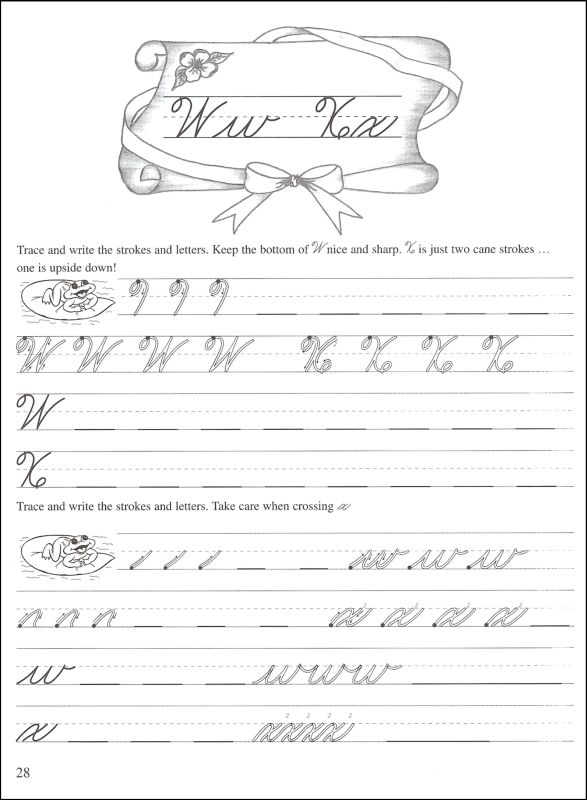 W w X x
Trace and write the strokes and letters. Keep the bottom of W nice and sharp. X is just two cane strokes …
one is upside down!
W W W W X X X X
W
X
Trace and write the strokes and letters. Take care when crossing x
w w w
x x x x
w www
x xxxx
28